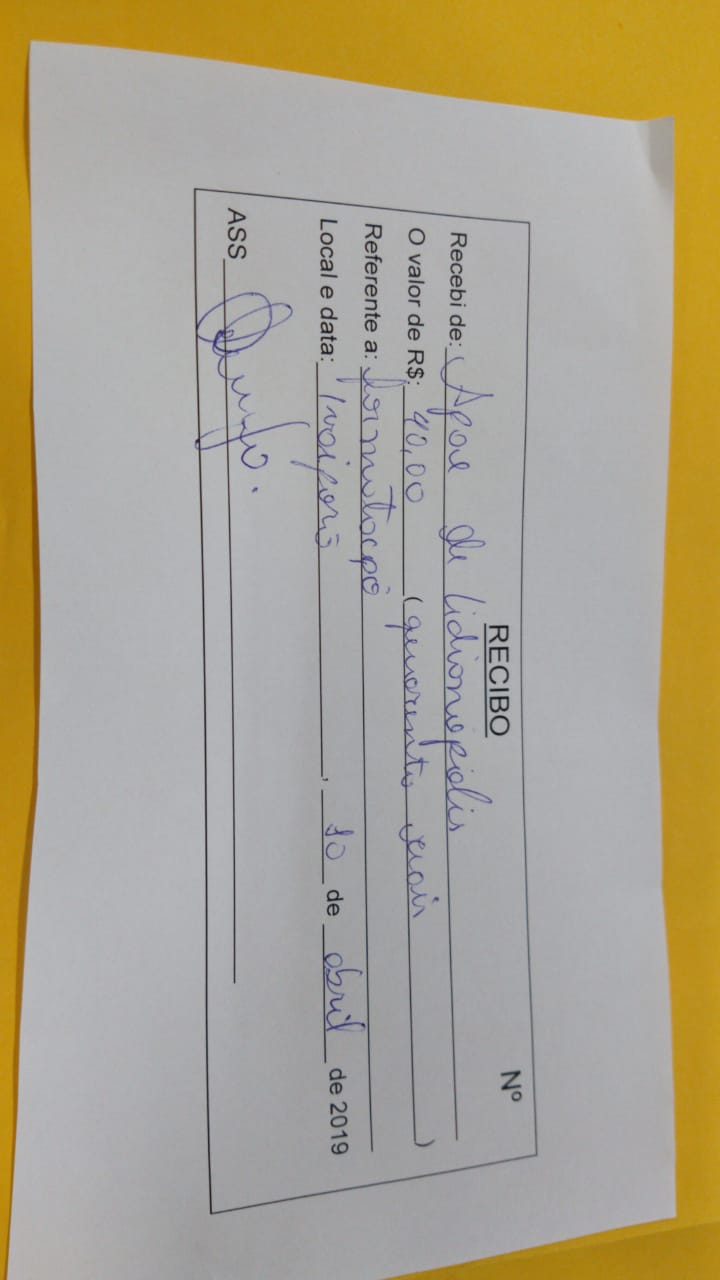 RECIBO Nº
Recebi de: Apae de Lidianópolis
O valor de R$: 40,00 (quarenta reais)
Referente a: formatação
Local e data: Ivaiporã, 10 de abril de 2019
ASS